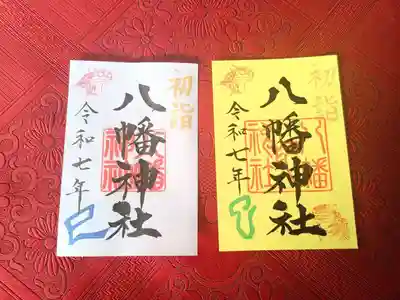 初詣
八幡神社
令和七年
巳
初詣
八幡神社
令和七年